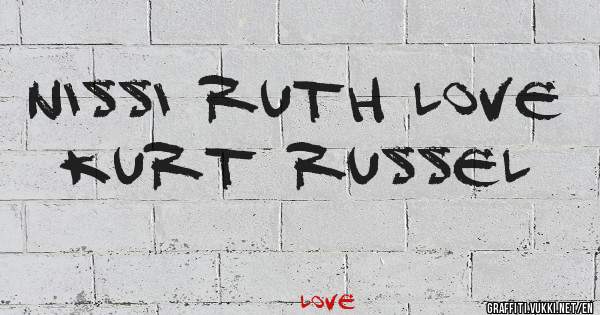 NISSI RUTH LOVE
KURT RUSSEL
LOVE
GRAFFITI.YUKKI.NET/EN